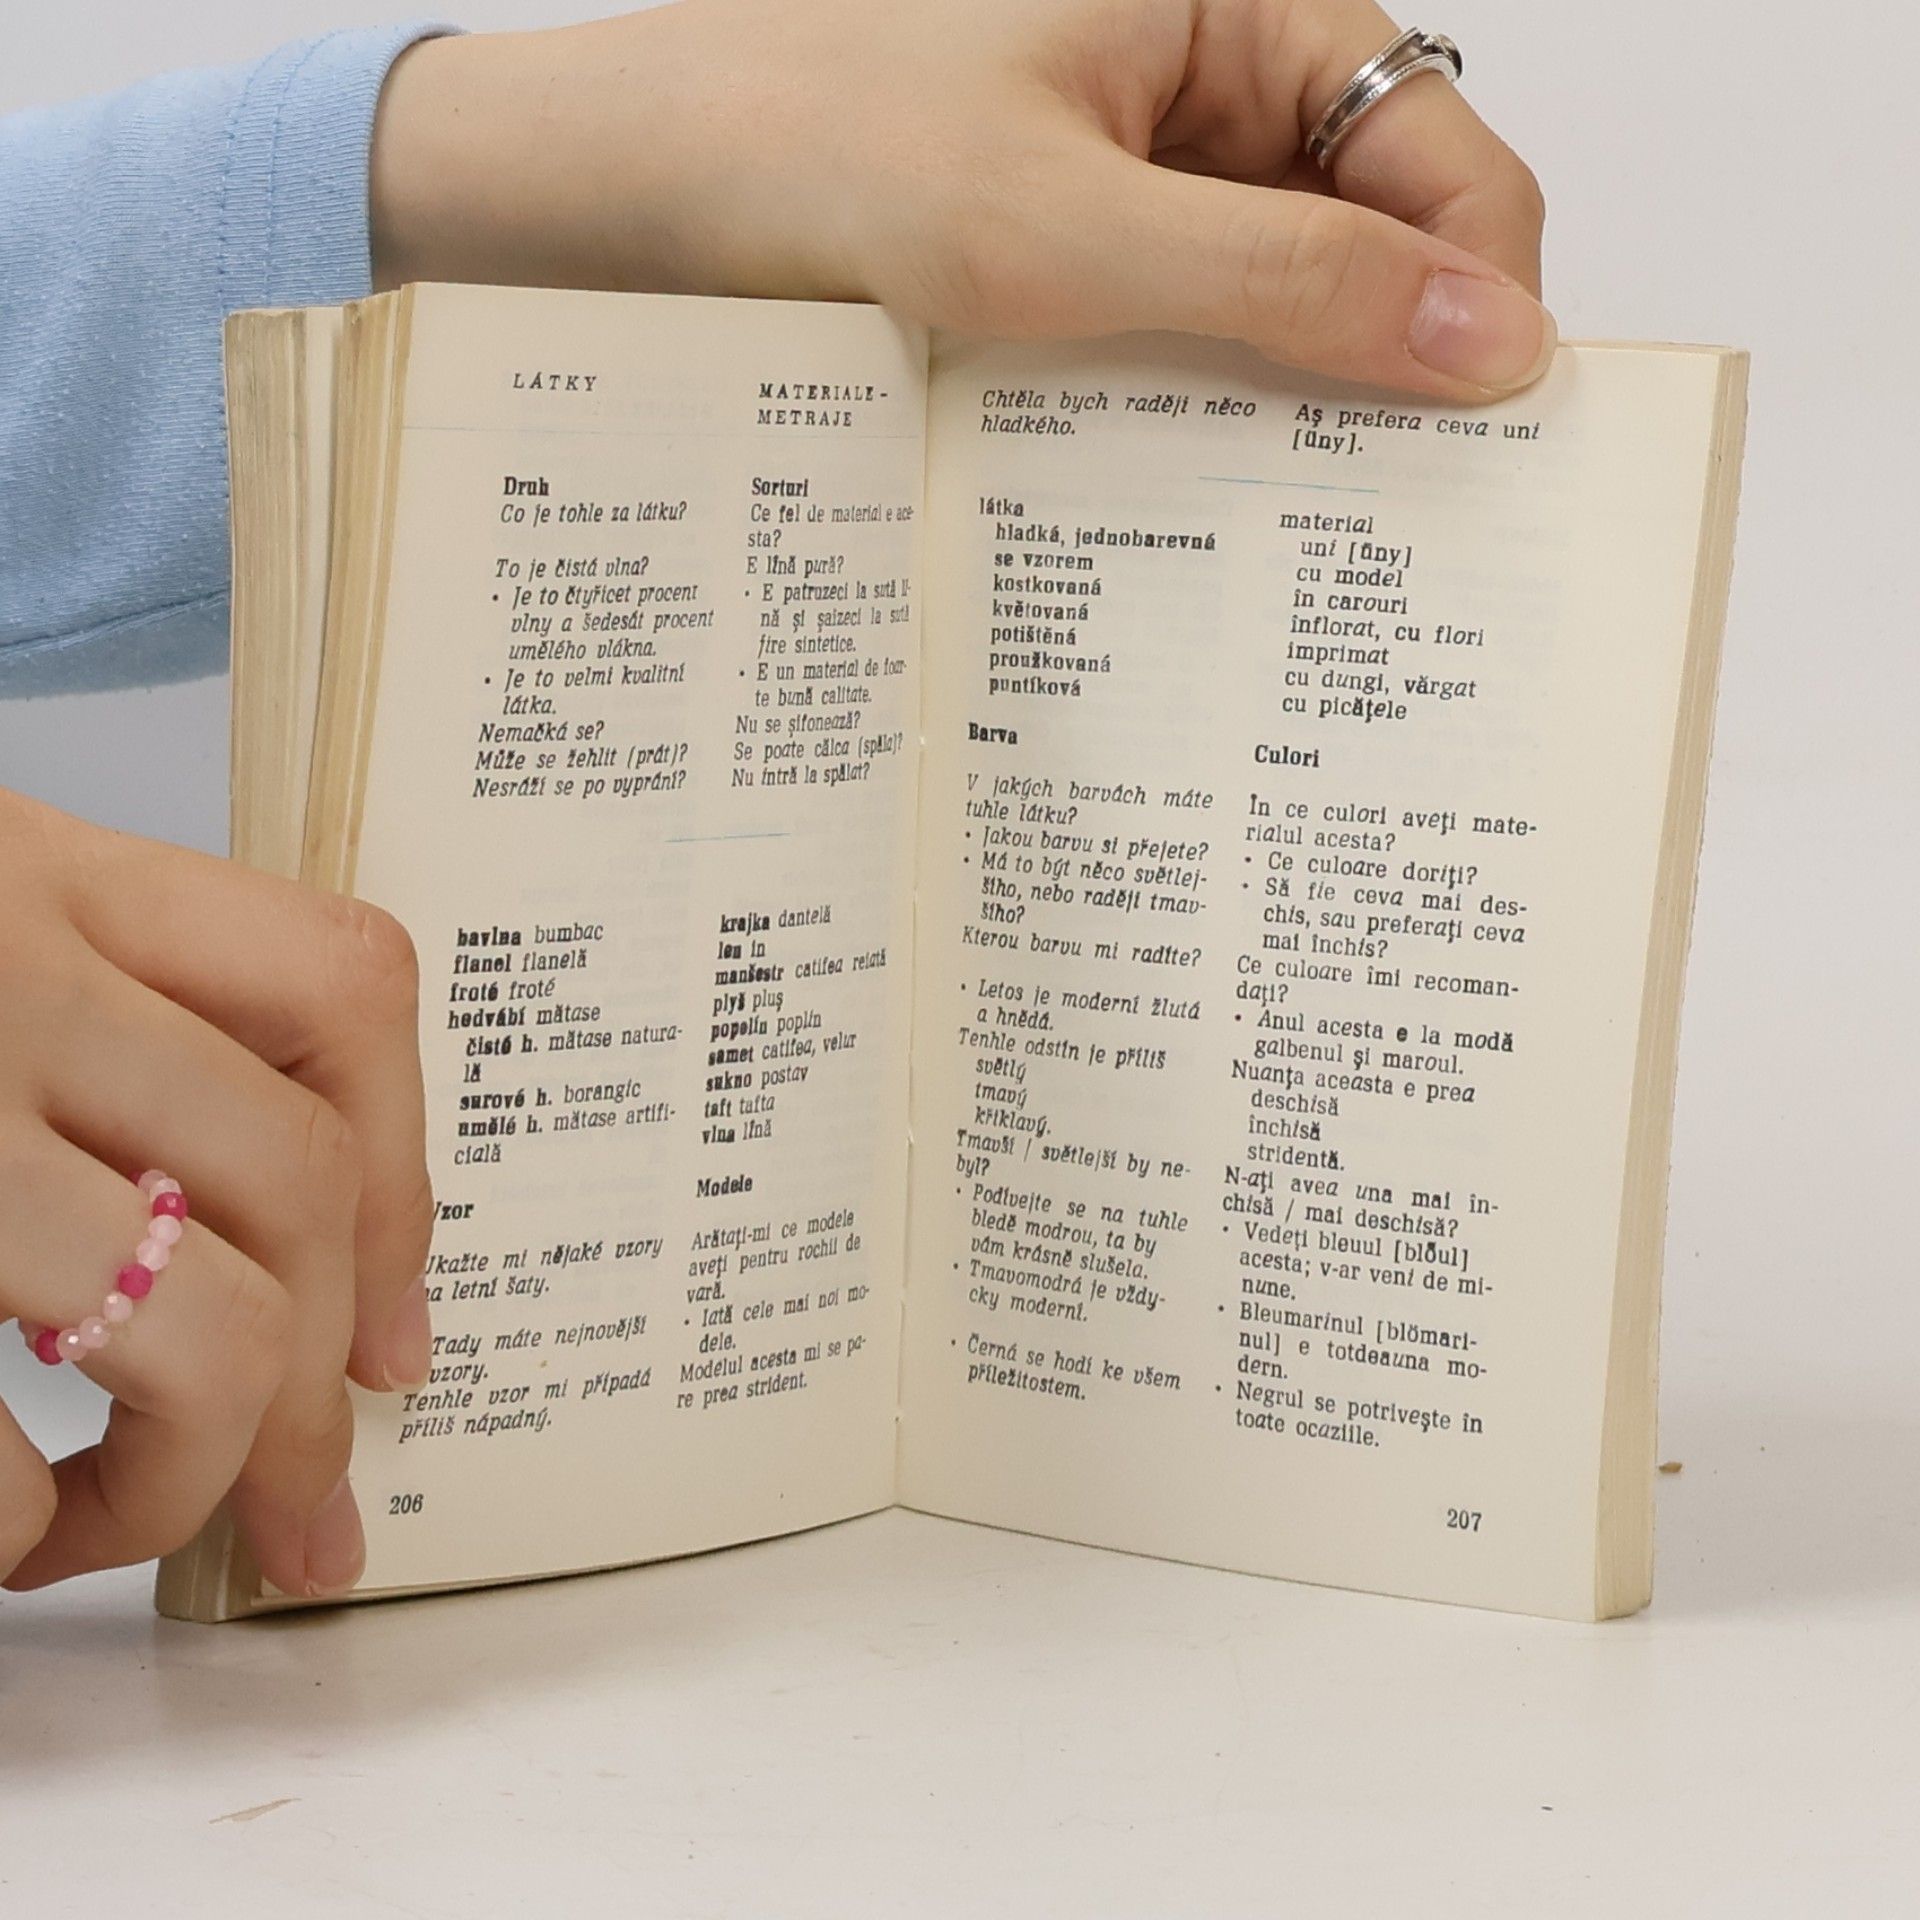 LÁTKY
MATERIALE-
METRAJE
Druh
Co je tohle za látku?
To je čistá vlna?
• Je to čtyřicet procent
vlny a šedesát procent
umělého vlákna.
• Je to velmi kvalitní
látka.
Nemačká se?
Může se žehlit (prát)?
Nesráží se po vyprání?
Sorturi
Ce fel de material e ace-
sta?
E lînă pură?
• E patruzeci la sută lî-
nă și șaizeci la sută
fire sintetice.
• E un material de foar-
te bună calitate.
Nu se șifonează?
Se poate călca (spăla)?
Nu intră la spălat?
bavlna bumbac
flanel flanelă
froté froté
hedvábí mătase
čisté h. mătase natura-
lă
surové h. borangic
umělé h. mătase artifi-
cială
krajka dantelă
len in
manšestr catifea reiată
plyš pluș
popelín poplin
samet catifea, velur
sukno postav
taft tafta
vlna lînă
Vzor
Ukažte mi nějaké vzory
na letní šaty.
Tady máte nejnovější
vzory.
Tenhle vzor mi připadá
příliš nápadný.
Modele
Arătați-mi ce modele
aveți pentru rochii de
vară.
• Iată cele mai noi mo-
dele.
Modelul acesta mi se pa-
re prea strident.
206
Chtěla bych raději něco
hladkého.
Aș prefera ceva uni
[üny].
látka
hladká, jednobarevná
se vzorem
kostkovaná
květovaná
potištěná
proužkovaná
puntíková
material
uni [üny]
cu model
în carouri
înflorat, cu flori
imprimat
cu dungi, vărgat
cu picățele
Barva
V jakých barvách máte
tuhle látku?
• Jakou barvu si přejete?
• Má to být něco světlej-
šího, nebo raději tmav-
šího?
Kterou barvu mi radíte?
• Letos je moderní žlutá
a hnědá.
Tenhle odstín je příliš
světlý
tmavý
křiklavý.
Tmavší / světlejší by ne-
byl?
• Podívejte se na tuhle
bledě modrou, ta by
vám krásně slušela.
• Tmavomodrá je vždy-
cky moderní.
• Černá se hodí ke všem
příležitostem.
Culori
În ce culori aveți mate-
rialul acesta?
• Ce culoare doriți?
• Să fie ceva mai des-
chis, sau preferați ceva
mai închis?
Ce culoare îmi recoman-
dați?
• Anul acesta e la modă
galbenul și maroul.
Nuanța aceasta e prea
deschisă
închisă
stridentă.
N-ați avea una mai în-
chisă / mai deschisă?
• Vedeți bleuul [blöul]
acesta; v-ar veni de mi-
nune.
• Bleumarinul [blömari-
nul] e totdeauna mo-
dern.
• Negrul se potrivește în
toate ocaziile.
207